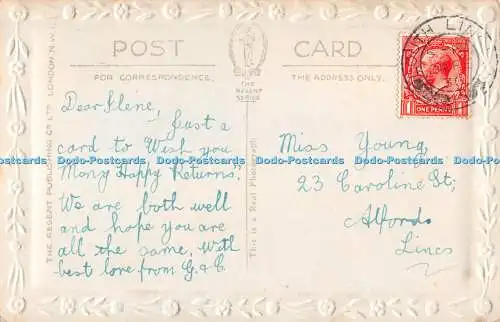 POST CARD
FOR CORRESPONDENCE.
THE ADDRESS ONLY.
THE REGENT SERIES
THE REGENT PUBLISHING CO LTD LONDON. N.W.1
This is a Real Photograph
ONE PENNY
LINCS
Dear Ilene,
Just a
card to Wish you
Many Happy Returns.
We are both well
and hope you are
all the same, With
best love from G. & C.
Miss Young
23 Caroline St,
Alford
Lincs
Dodo-Postcards Dodo-Postcards Dodo-Postcards Dodo-Postcards Dodo-Postcards